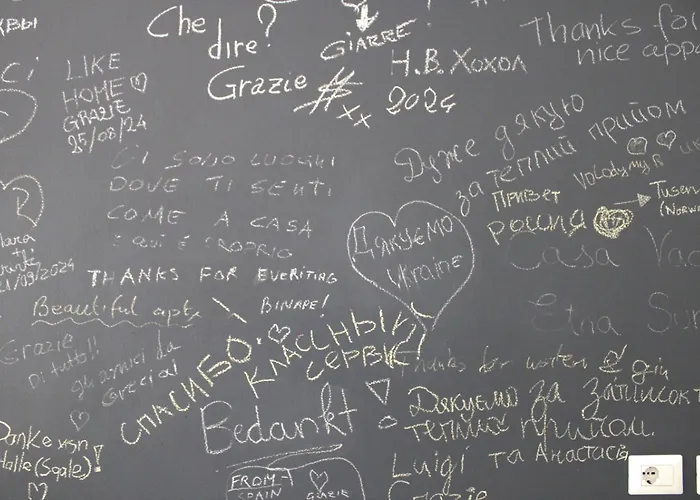 Che
dire?
Grazie
GIARRE
Н.В. Хохол
2024
Thanks for
nice app
LIKE
HOME
GRAZIE
25/08/24
CI SONO LUOGHI
DOVE TI SENTI
COME A CASA
E QUI È PROPRIO
Дуже дякую
за теплий прийом
Volodymyr
Привет
россия
Tusen
(Norw
Дякуємо
Ukraine
Casa Vac
Etna Sun
THANKS FOR EVERITING
Beautiful apt
BINAPE!
Grazie
Di tutto!!
gli amici da
Grecia!
СПАСИБО
КЛАССНЫЙ
СЕРВИС
Thanks for water & gin
Bedankt
Дякуємо за
теплий прийом.
Luigi та Анастасія
Grazie
Danke
Halle (Saale)!
FROM
SPAIN
GRAZIE